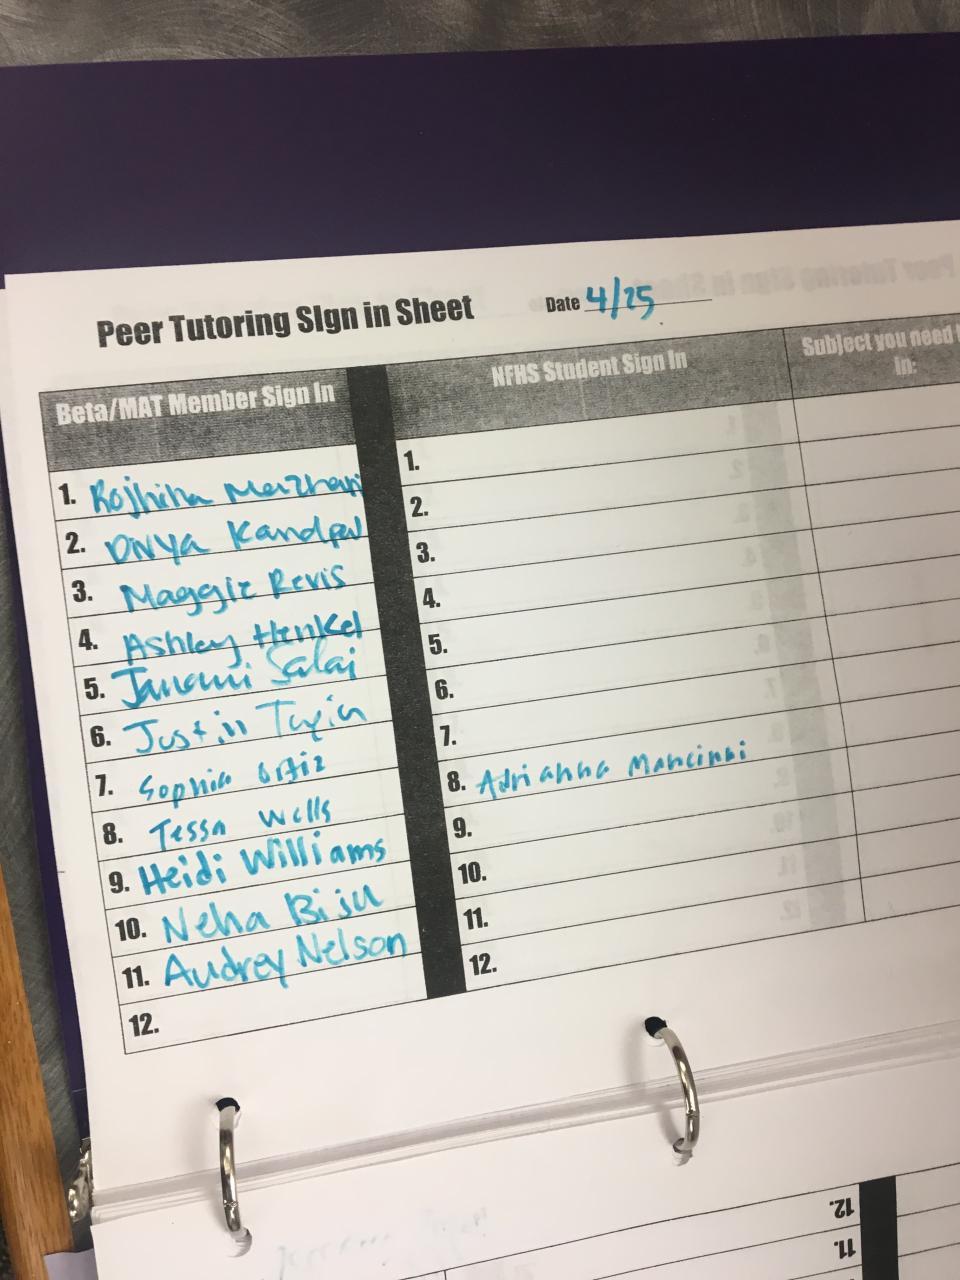 Peer Tutoring SIgn in Sheet Date 4/25
Beta/MAT Member Sign In
NFHS Student Sign In
Subject you need
In:
1.
2. Kandpal
3. Maggie Revis
4. Ashley Henkel
5. Salai
6. Justin
7. Sophia Ortiz
8. Tessa Wells
9. Heidi Williams
10. Neha Biju
11. Audrey Nelson
12.
1.
2.
3.
4.
5.
6.
7.
8. Adrianna Mancinni
9.
10.
11.
12.
12.
11.